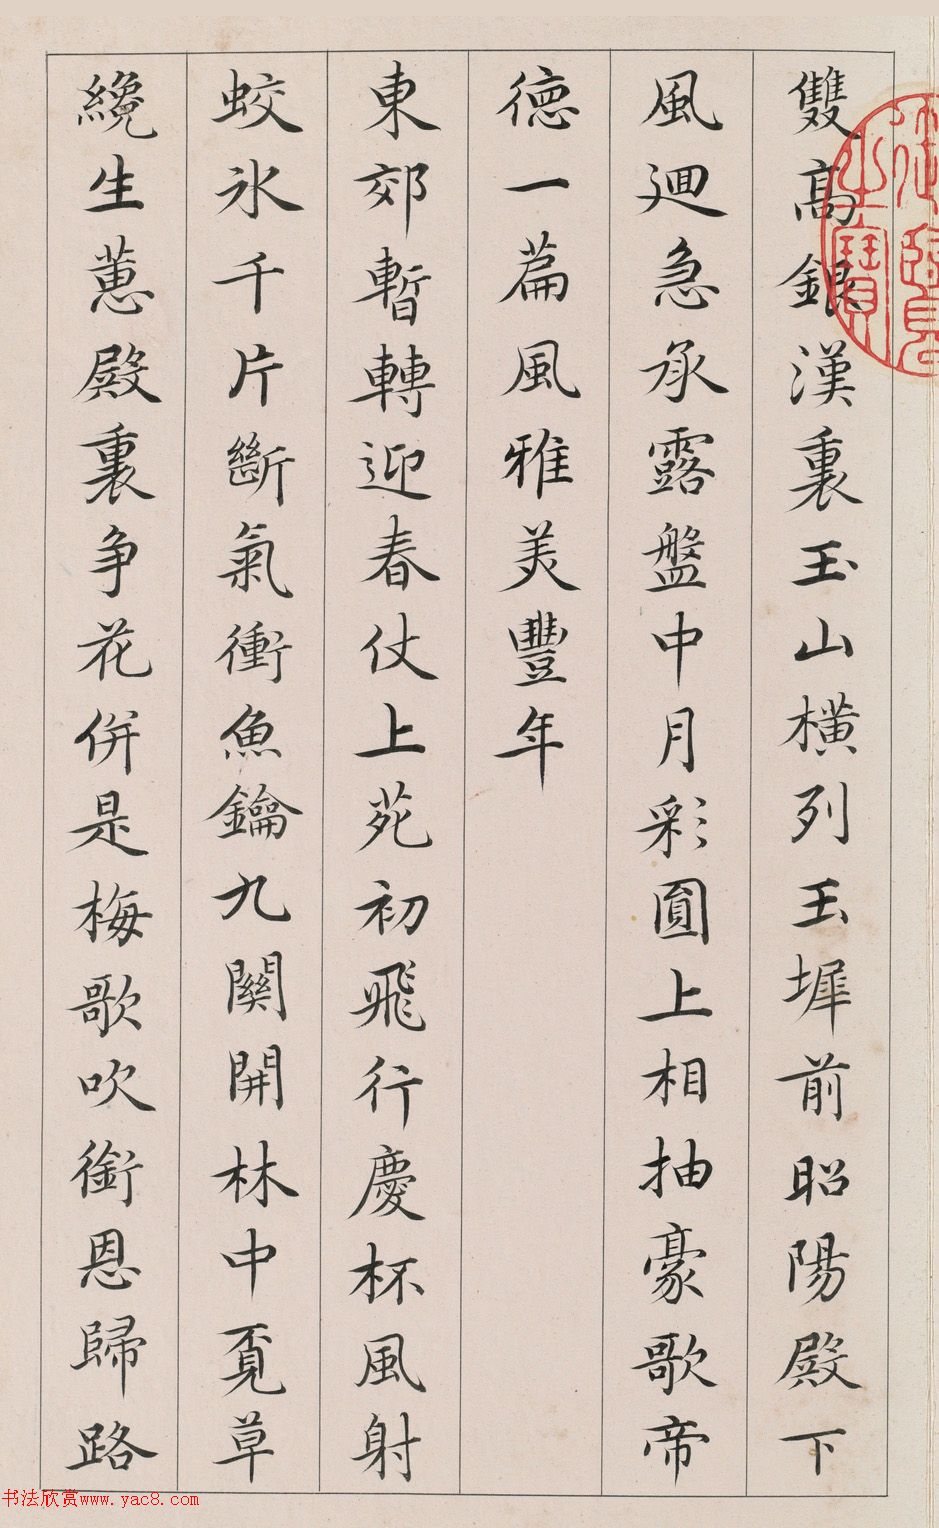 雙高銀漢裏玉山橫列玉墀前昭陽殿下
風迴急承露盤中月彩圓上相抽豪歌帝
德一篇風雅美豐年
東郊暫轉迎春仗上苑初飛行慶杯風射
蛟氷千片斷氣衝魚鑰九關開林中覓草
纔生蕙殿裏争花併是梅歌吹銜恩歸路
书法欣赏www.yac8.com